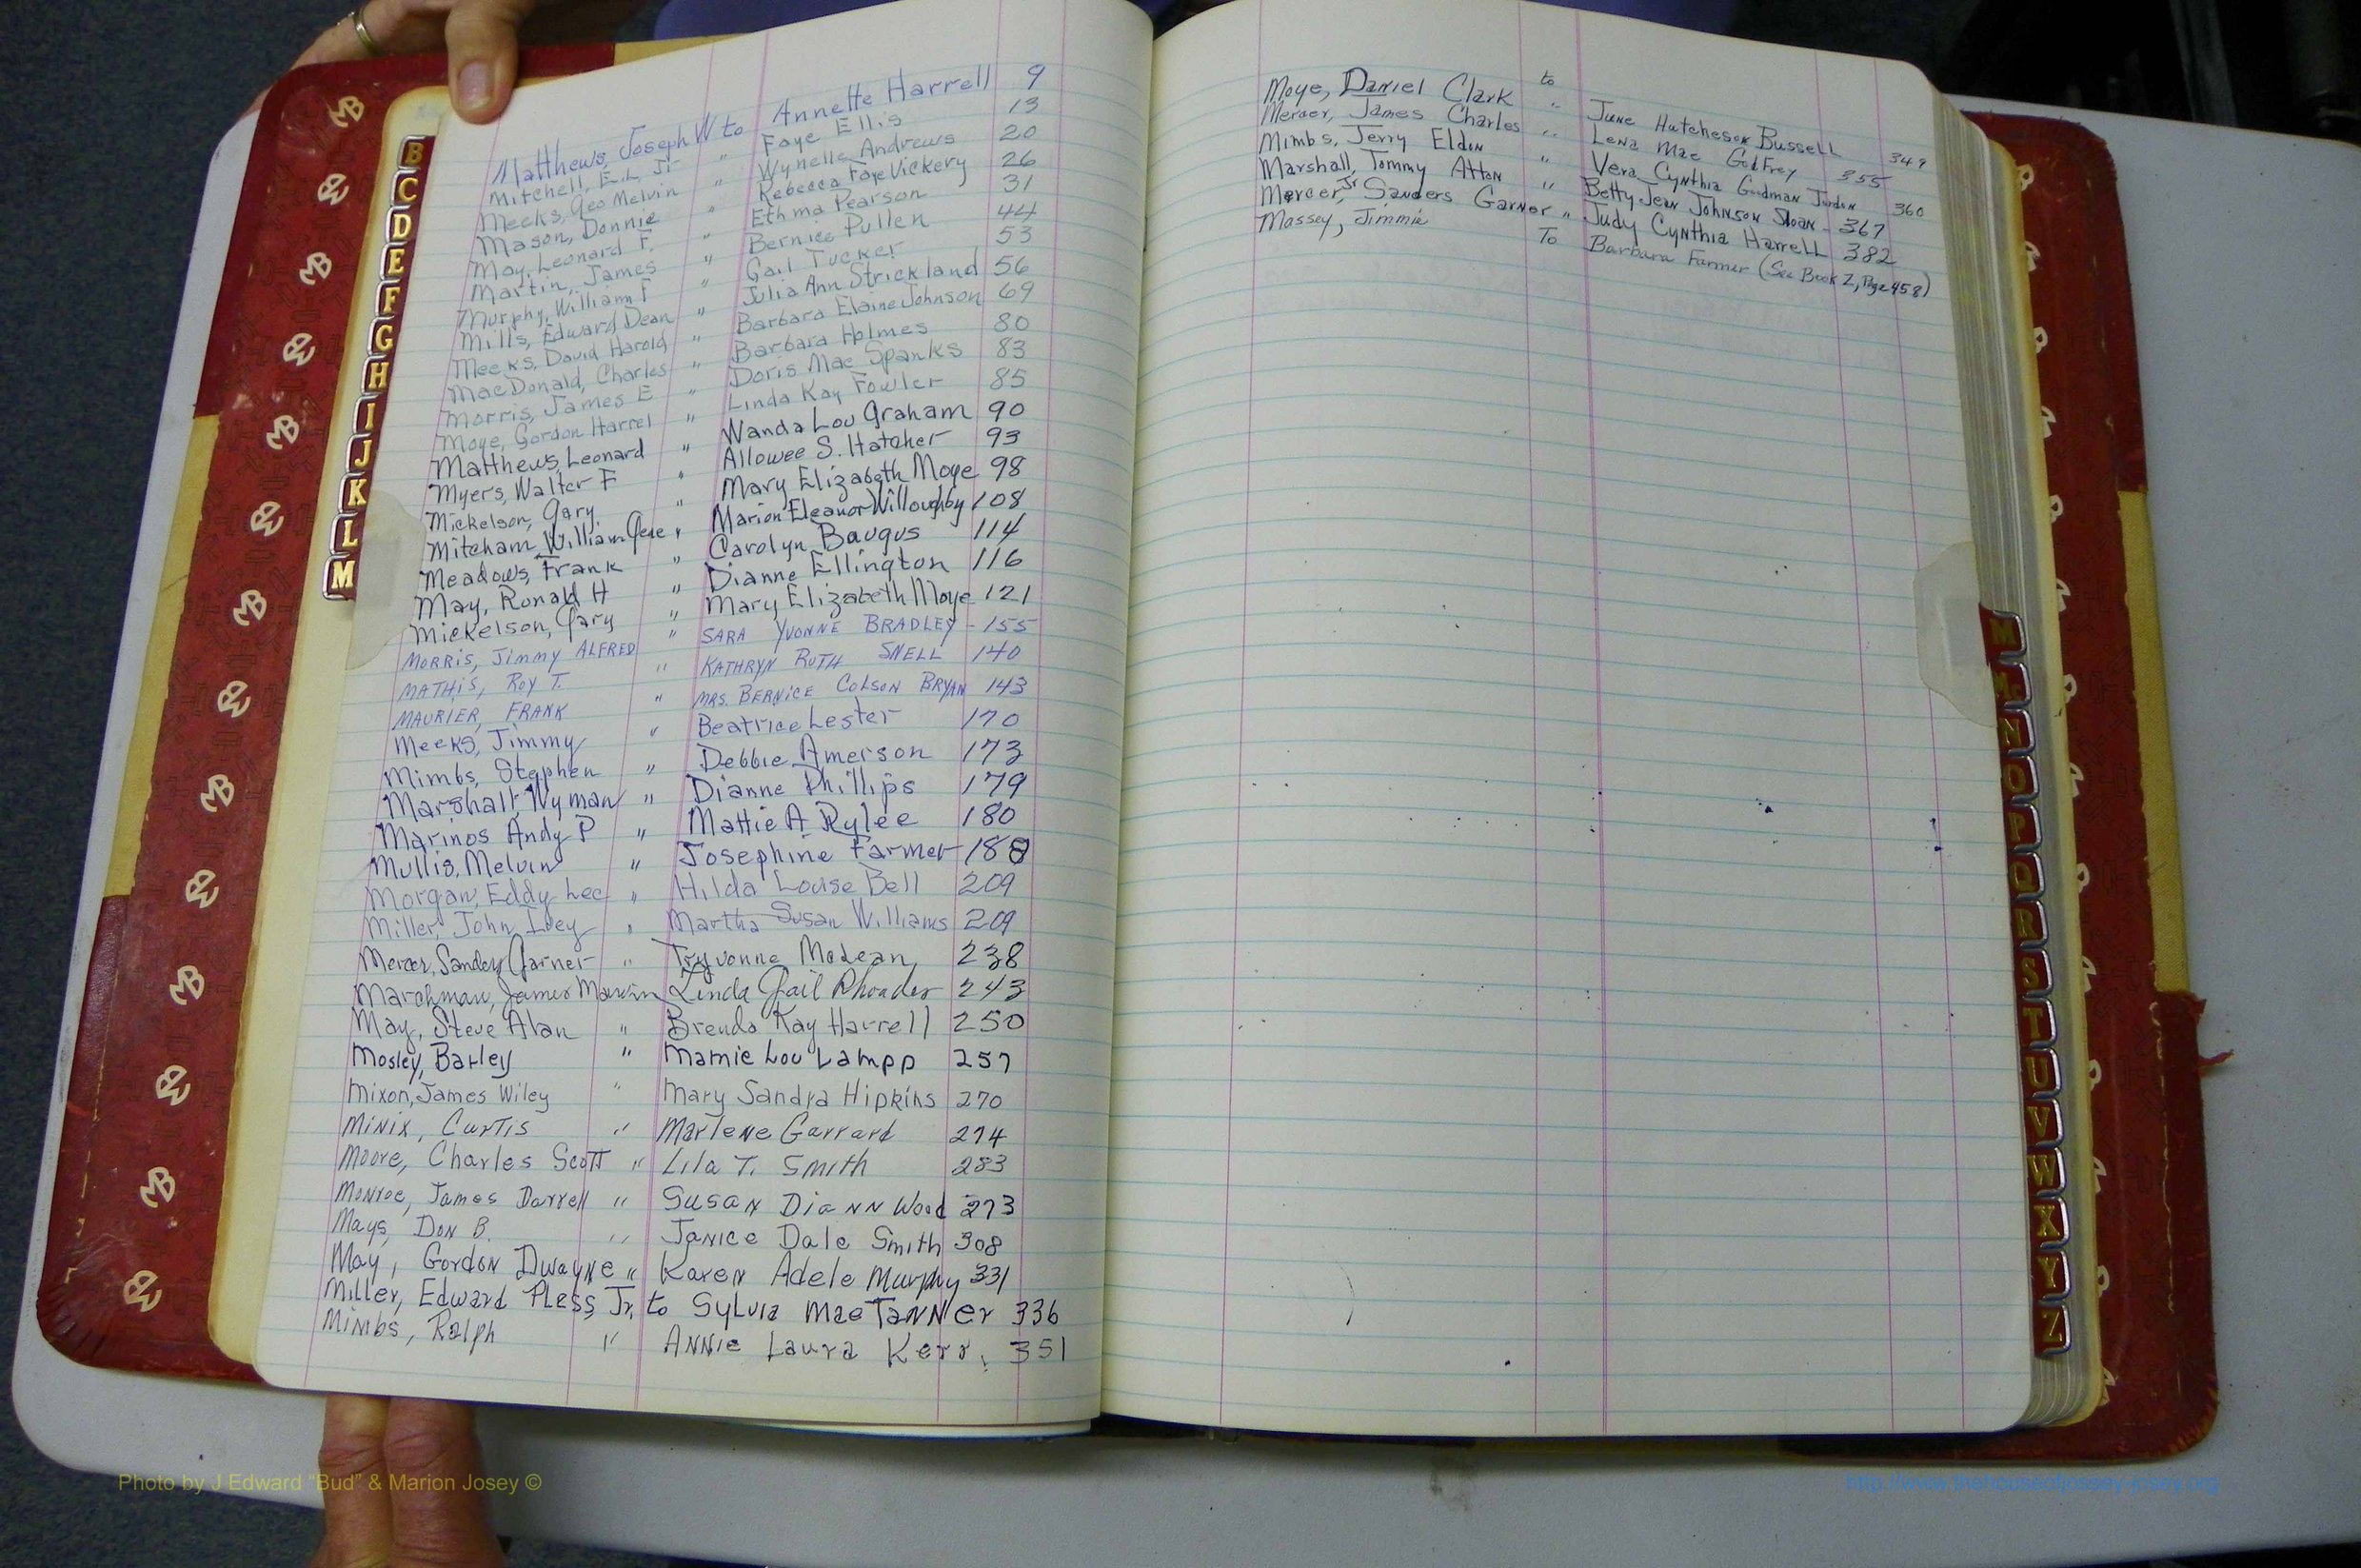 Matthews, Joseph W to Annette Harrell 9
Mitchell, E.L. Jr " Faye Ellis 13
Meeks, Geo Melvin " Wynelle Andrews 20
Mason, Donnie " Rebecca Faye Vickery 26
May, Leonard F. " Ethma Pearson 31
Martin, James " Bernice Pullen 44
Murphy, William F " Gail Tucker 53
Mills, Edward Dean " Julia Ann Strickland 56
Meeks, David Harold " Barbara Elaine Johnson 69
MacDonald, Charles " Barbara Holmes 80
Morris, James E " Doris Mae Spanks 83
Moye, Gordon Harrel " Linda Kay Fowler 85
Matthews, Leonard " Wanda Lou Graham 90
Myers, Walter F " Allowee S. Hatcher 93
Mickelson, Gary " Mary Elizabeth Moye 98
Mitcham, William Gene " Marion Eleanor Willoughby 108
Meadows, Frank " Carolyn Baugus 114
May, Ronald H " Dianne Ellington 116
Mickelson, Gary " Mary Elizabeth Moye 121
MORRIS, Jimmy ALFRED " SARA YVONNE BRADLEY - 155
MATHIS, Roy T. " KATHRYN RUTH SNELL 140
MAURIER, FRANK " MRS. BERNICE COLSON BRYAN 143
Meeks, Jimmy " Beatrice Lester 170
Mimbs, Stephen " Debbie Amerson 173
Marshall, Wyman " Dianne Phillips 179
Marinos Andy P " Mattie A Rylee 180
Mullis, Melvin " Josephine Farmer 188
Morgan, Eddy Lee " Hilda Louise Bell 209
Miller, John Loey " Martha Susan Williams 209
Mercer, Sanders Garner " Tryvonne McLean 238
Marchman, James Marvin Linda Gail Rhoades 243
May, Steve Alan " Brenda Kay Harrell 250
Mosley, Barley " Mamie Lou Lampp 257
Mixon, James Wiley " Mary Sandra Hipkins 270
Minix, Curtis " Marlene Garrard 274
Moore, Charles Scott " Lila T. Smith 283
Monroe, James Darrell " Susan Diann Wood 273
Mays, Don B. " Janice Dale Smith 308
May, Gordon Dwayne " Karen Adele Murphy 331
Miller, Edward Pless, Jr. to Sylvia Mae Tanner 336
Mimbs, Ralph " Annie Laura Kerr, 351
Moye, Daniel Clark to June Hutcheson Bussell 349
Mercer, James Charles " Lena Mae Godfrey 355
Mimbs, Jerry Eldon " Vera Cynthia Goodman Jordon 360
Marshall, Tommy Atton " Betty Jean Johnson Sloan - 367
Mercer, Jr Sanders Garner " Judy Cynthia Harrell 382
Massey, Jimmie To Barbara Farmer (See Book Z, Page 458)
B
C
D
E
F
G
H
I
J
K
L
M
M
Mc
N
O
P
Q
R
S
T
U
V
W
X
Y
Z
Photo by J Edward “Bud” & Marion Josey ©
http://www.thehouseofjossey-josey.org